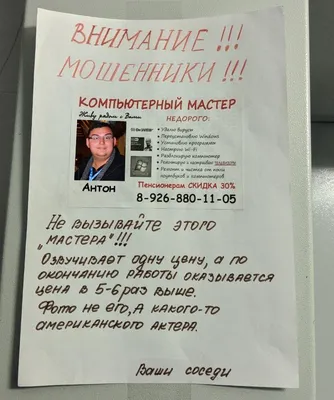 ВНИМАНИЕ!!!
МОШЕННИКИ!!!
КОМПЬЮТЕРНЫЙ МАСТЕР
Живу рядом с Вами
НЕДОРОГО:
• Удалю вирусы
• Переустановлю Windows
• Установлю программы
• Настрою Wi-Fi
• Разблокирую компьютер
• Ремонт и чистка от пыли
ноутбуков и компьютеров
Антон
Пенсионерам СКИДКА 30%
8-926-880-11-05
Не вызывайте этого
"мастера"!!!
Озвучивает одну цену, а по
окончанию работы оказывается
цена в 5-6 раз выше.
Фото не его, а какого-то
американского актера.
Ваши соседи